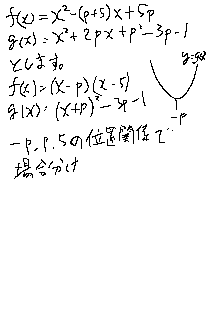 f(x)=x²-(p+5)x+5p
g(x)=x²+2px+p²-3p-1
とします。
f(x)=(x-p)(x-5)
g(x)=(x+p)²-3p-1
y=g(x)
-p
-p,p,5の位置関係で
場合分け